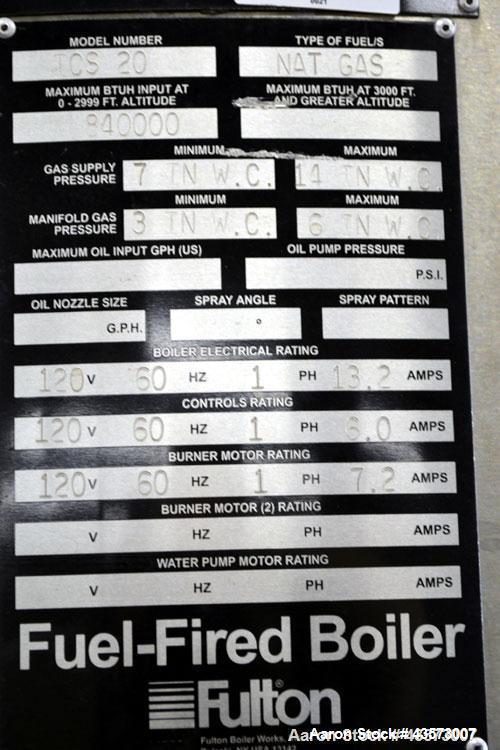 MODEL NUMBER TYPE OF FUEL/S
ICS 20 NAT GAS
MAXIMUM BTUH INPUT AT MAXIMUM BTUH AT 3000 FT.
0 - 2999 FT. ALTITUDE AND GREATER ALTITUDE
840000
MINIMUM MAXIMUM
GAS SUPPLY PRESSURE 7 IN W.C. 14 IN W.C.
MINIMUM MAXIMUM
MANIFOLD GAS PRESSURE 3 IN W.C. 6 IN W.C.
MAXIMUM OIL INPUT GPH (US) OIL PUMP PRESSURE
P.S.I.
OIL NOZZLE SIZE SPRAY ANGLE SPRAY PATTERN
G.P.H. °
BOILER ELECTRICAL RATING
120 V 60 HZ 1 PH 13.2 AMPS
CONTROLS RATING
120 V 60 HZ 1 PH 6.0 AMPS
BURNER MOTOR RATING
120 V 60 HZ 1 PH 7.2 AMPS
BURNER MOTOR (2) RATING
V HZ PH AMPS
WATER PUMP MOTOR RATING
V HZ PH AMPS
Fuel-Fired Boiler
Fulton
Fulton Boiler Works,
Aaron Stock #43573007